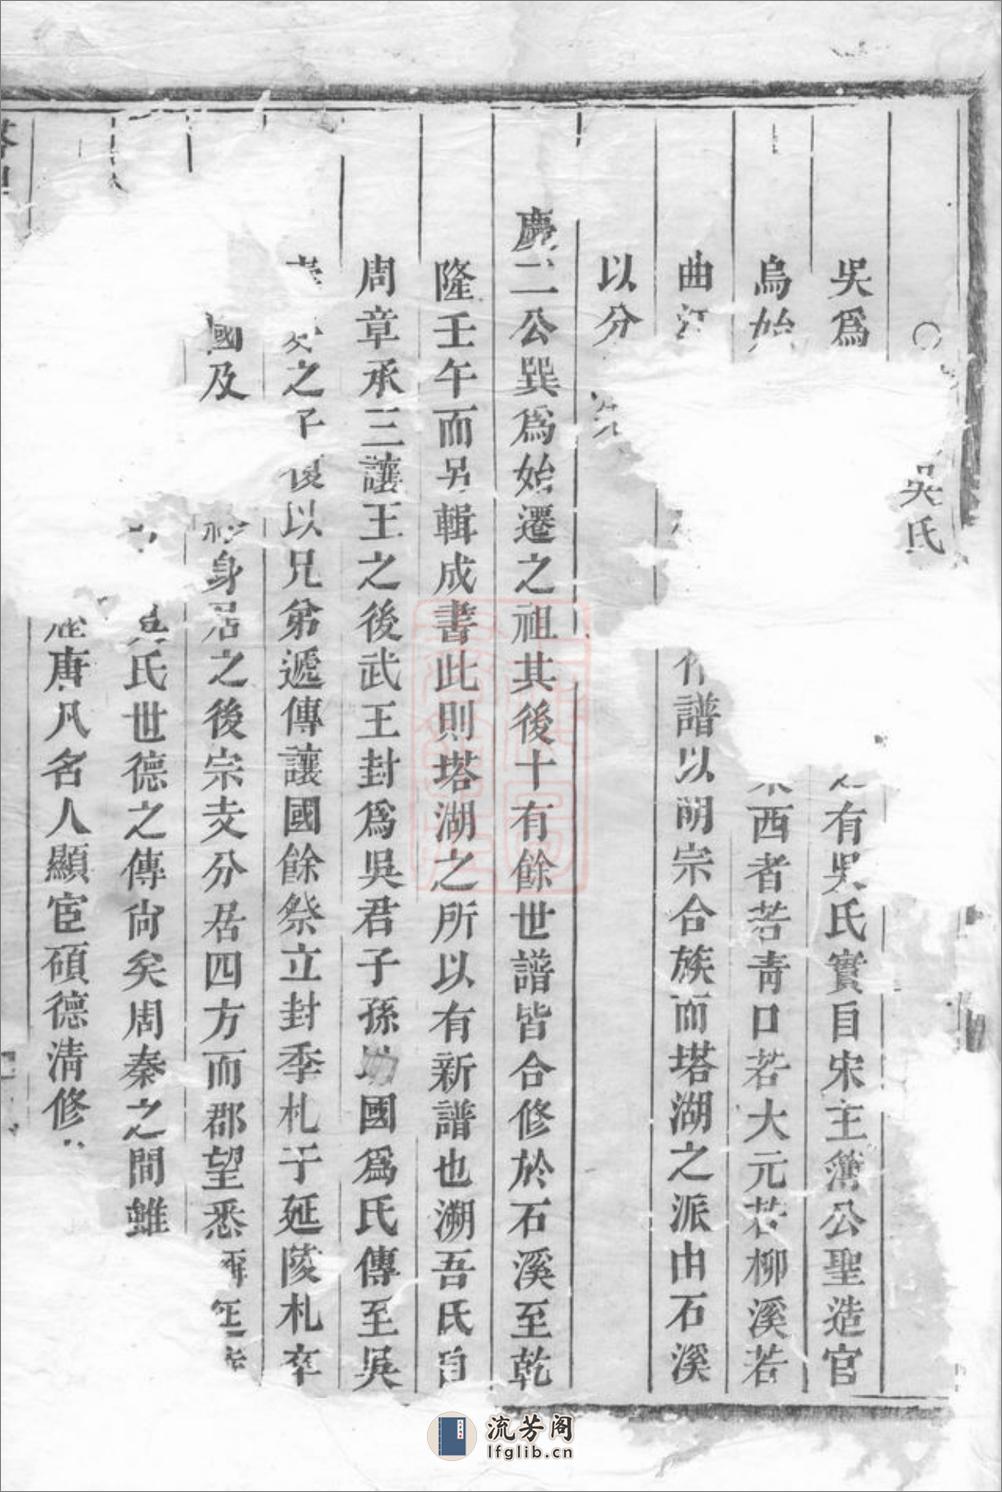 吳氏
吳爲有吳氏實自宋主簿公聖造官
烏始西者若青口若大元若柳溪若
曲江譜以萌宗合族而塔湖之派由石溪
以分
慶二公巽爲始遷之祖其後十有餘世譜皆合修於石溪至乾
隆壬午而另輯成書此則塔湖之所以有新譜也溯吾氏自
周章承三讓王之後武王封爲吳君子孫國爲氏傳至吳
之子復以兄弟遞傳讓國餘祭立封季札于延陵札卒
國及身居之後宗支分居四方而郡望悉
吳氏世德之傳尙矣周秦之間雖
唐凡名人顯宦碩德清修
流芳阁
lfglib.cn